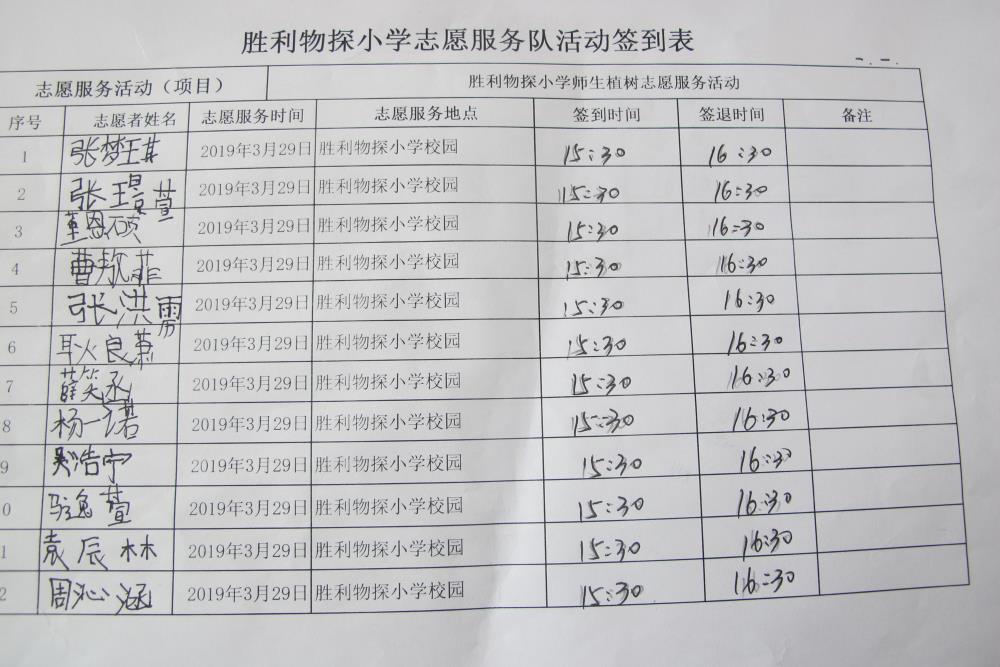 胜利物探小学志愿服务队活动签到表
志愿服务活动（项目） 胜利物探小学师生植树志愿服务活动
序号 志愿者姓名 志愿服务时间 志愿服务地点 签到时间 签退时间 备注
1 张梦琪 2019年3月29日 胜利物探小学校园 15:30 16:30
2 张璟萱 2019年3月29日 胜利物探小学校园 15:30 16:30
3 董恩硕 2019年3月29日 胜利物探小学校园 15:30 16:30
4 曹歆菲 2019年3月29日 胜利物探小学校园 15:30 16:30
5 张洪雷 2019年3月29日 胜利物探小学校园 15:30 16:30
6 耿良慕 2019年3月29日 胜利物探小学校园 15:30 16:30
7 薛笑丞 2019年3月29日 胜利物探小学校园 15:30 16:30
8 杨一诺 2019年3月29日 胜利物探小学校园 15:30 16:30
9 吴浩宁 2019年3月29日 胜利物探小学校园 15:30 16:30
0 骆逸萱 2019年3月29日 胜利物探小学校园 15:30 16:30
1 袁辰林 2019年3月29日 胜利物探小学校园 15:30 16:30
2 周沁涵 2019年3月29日 胜利物探小学校园 15:30 16:30